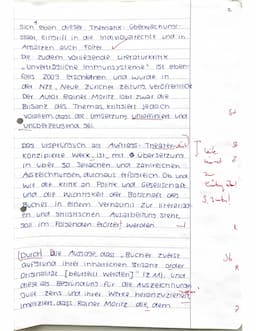 2
sich eben dieser Thematik: Überwachungs-
staat, Eingriff in die Individualrechte und in
Ansätzen auch Folter.
Die zudem vorliegende Literaturkritik
„Unverträgliche Immunsysteme" ist eben-
falls 2009 erschienen und wurde in
der NZZ, Neue Zürcher Zeitung, veröffentlicht.
Der Autor Rainer Moritz lobt zwar die
Brisanz des Themas, kritisiert jedoch
vor allem, dass die Umsetzung unraffiniert und
unüberzeugend sei.
Das ursprünglich als Auftrags-Theater
konzipierte Werk ist, mit Übersetzung
in über 30 Sprachen und zahlreichen
Auszeichnungen, durchaus erfolgreich. Ob und
wie die Kritik an Politik und Gesellschaft
und die Wichtigkeit der Botschaft des
Buches in einem Verhältnis zur literarischen
und stilistischen Ausarbeitung steht,
soll im Folgenden erörtert werden.
Durch die Aussage, dass „Bücher zuerst
aufgrund ihrer inhaltlichen Brisanz oder
Originalität [beurteilt werden]" (Z. ), und
diese als Begründung für die Auszeichnung
Juli Zehs und ihrer Werke heranzuziehen,
impliziert, dass Rainer Moritz die dem